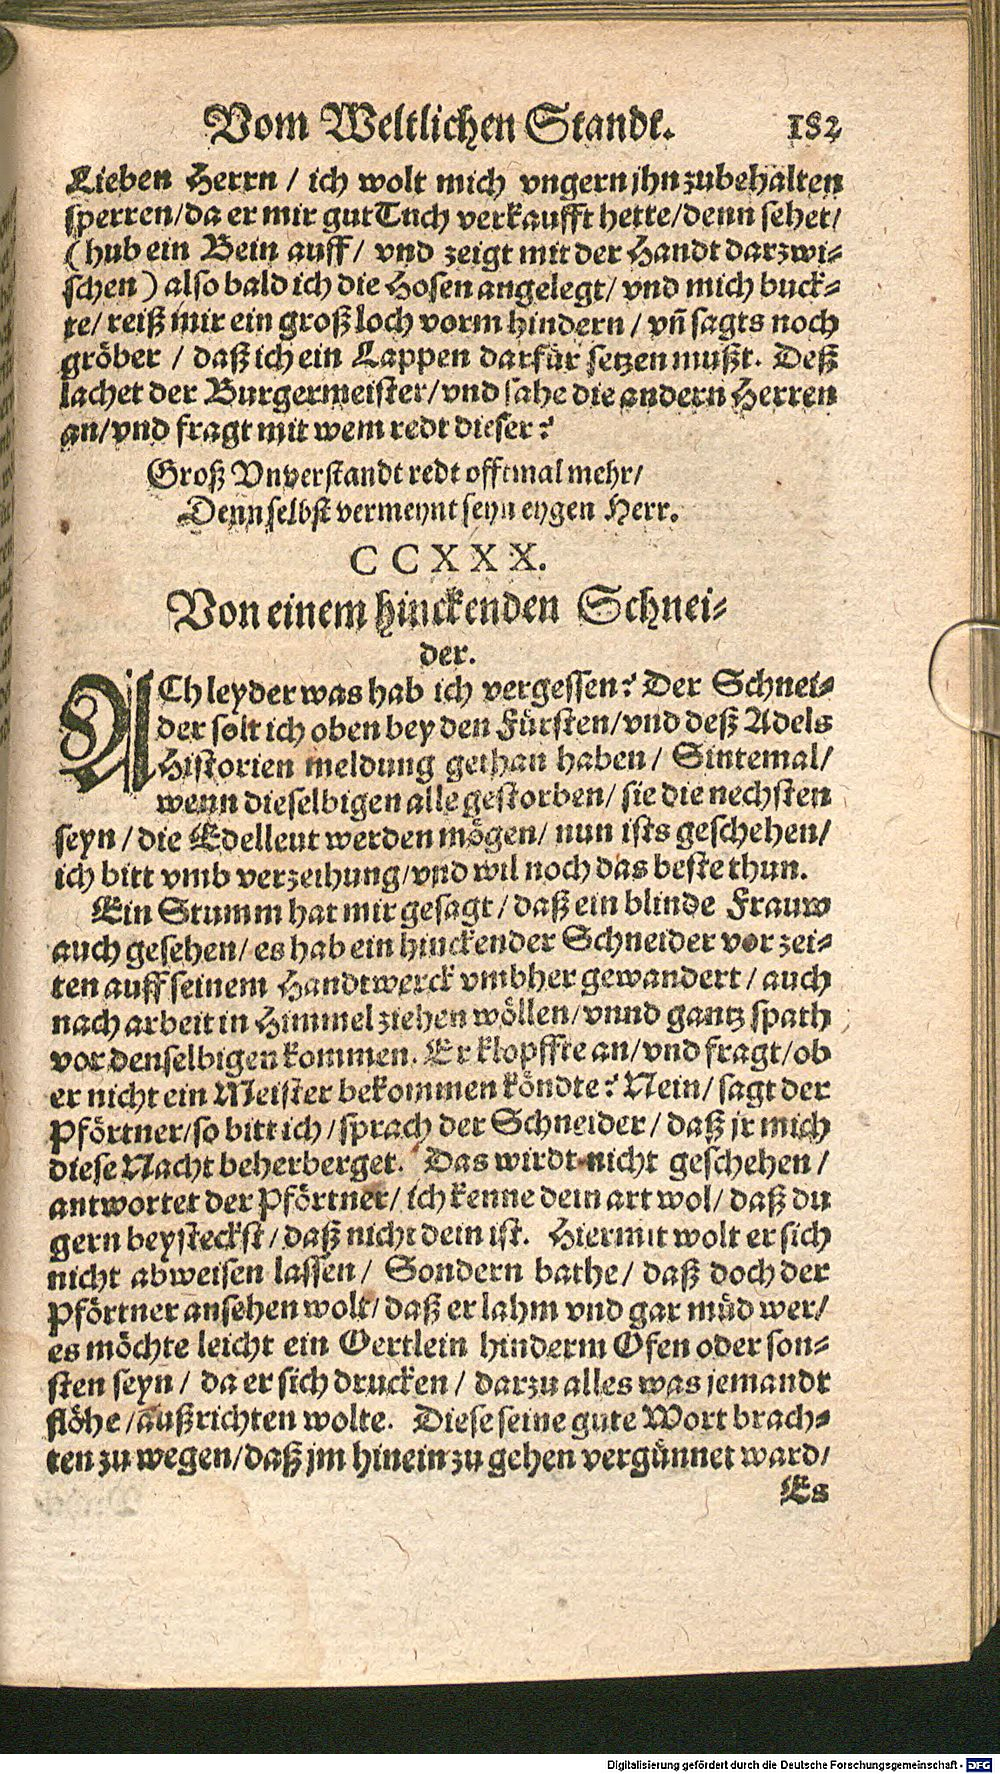 Vom Weltlichen Standt. 182
Lieben Herrn / ich wolt mich vngern jhn zubehalten
sperren/da er mir gut Tuch verkaufft hette/denn sehet/
(hub ein Bein auff/ vnd zeigt mit der Handt darzwi-
schen) also bald ich die Hosen angelegt/ vnd mich buck-
te/ reiß mir ein groß loch vorm hindern / vñ sagts noch
gröber / daß ich ein Lappen darfür setzen mußt. Deß
lachet der Burgermeister/vnd sahe die andern Herren
an/vnd fragt mit wem redt dieser?
Groß Vnverstandt redt offtmal mehr/
Denn selbst vermeynt seyn eygen Herr.
CCXXX.
Von einem hinckenden Schnei-
der.
ACh leyder was hab ich vergessen? Der Schnei-
der solt ich oben bey den Fürsten/vnd deß Adels
Historien meldung gethan haben/ Sintemal/
wenn dieselbigen alle gestorben/ sie die nechsten
seyn / die Edelleut werden mögen/ nun ists geschehen/
ich bitt vmb verzeihung/vnd wil noch das beste thun.
Ein Stumm hat mir gesagt/ daß ein blinde Frauw
auch gesehen/ es hab ein hinckender Schneider vor zei-
ten auff seinem Handtwerck vmbher gewandert/ auch
nach arbeit in Himmel ziehen wöllen/vnnd gantz spath
vor denselbigen kommen. Er klopffte an/vnd fragt/ob
er nicht ein Meister bekommen köndte? Nein/ sagt der
Pförtner/so bitt ich/sprach der Schneider/ daß jr mich
diese Nacht beherberget. Das wirdt nicht geschehen/
antwortet der Pförtner/ ich kenne dein art wol/ daß du
gern beysteckst/ daß nicht dein ist. Hiermit wolt er sich
nicht abweisen lassen/ Sondern bathe/ daß doch der
Pförtner ansehen wolt/ daß er lahm vnd gar müd wer/
es möchte leicht ein Oertlein hinderm Ofen oder son-
sten seyn / da er sich drucken / darzu alles was jemandt
flöhe/außrichten wolte. Diese seine gute Wort brach-
ten zu wegen/daß jm hinein zu gehen vergünnet ward/
Es
Digitalisierung gefördert durch die Deutsche Forschungsgemeinschaft - DFG